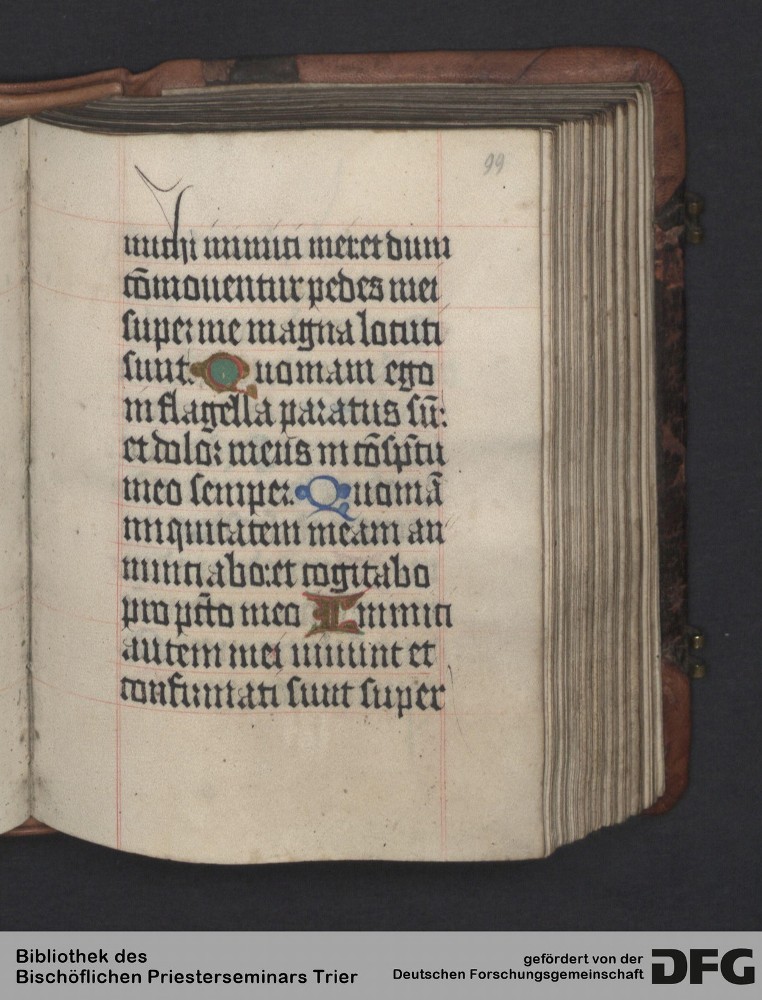 99
michi inimici mei: et dum
cōmouentur pedes mei
super me magna locuti
sunt. Quoniam ego
in flagella paratus sū:
et dolor meus in cōspc̄tu
meo semper. Quoniā
iniquitatem meam an
nuntiabo: et cogitabo
pro pc̄to meo Inimici
autem mei uiuunt et
confirmati sunt super
Bibliothek des
Bischöflichen Priesterseminars Trier
gefördert von der
Deutschen Forschungsgemeinschaft
DFG